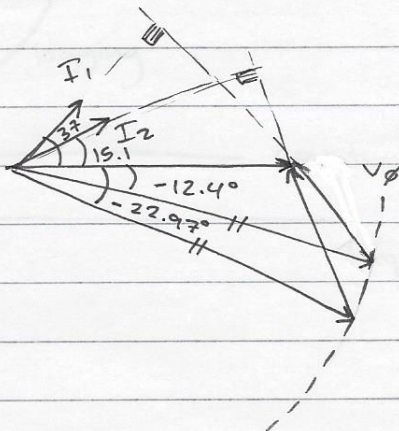 I1
37
I2
15.1
-12.4°
Vφ
-22.97°